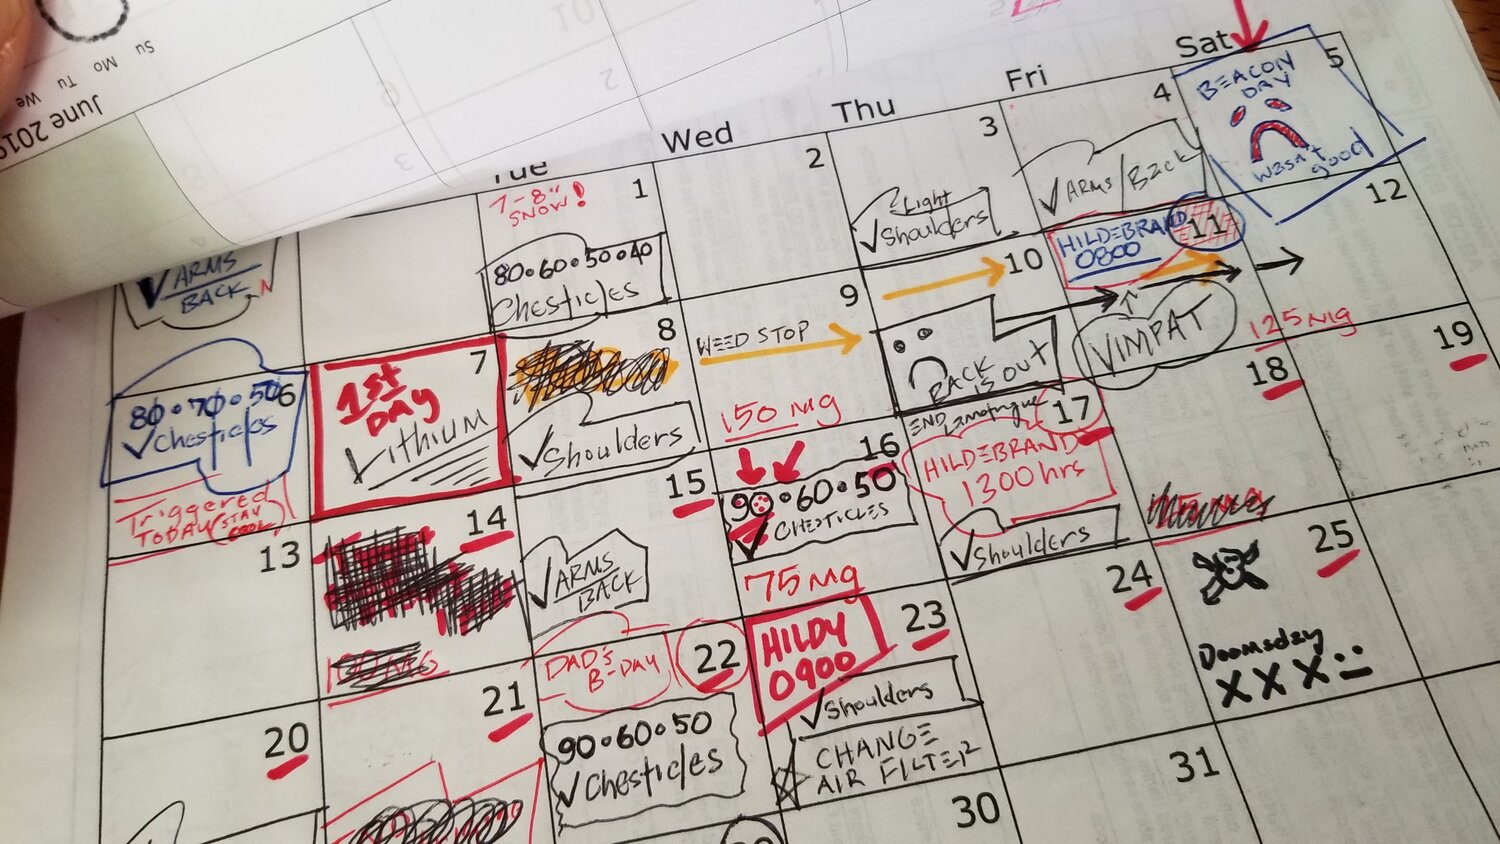 June 201
Su Mo Tu We
Tue
Wed
Thu
Fri
Sat
1
7-8" SNOW!
80•60•50•40
Chesticles
2
3
Light
✓Shoulders
4
✓ARMS/BACK
5
BEACON
DAY
wasn't
good
✓ARMS
BACK
6
80•70•50
✓Chesticles
Triggered
TODAY (STAY
COOL)
7
1st
DAY
Lithium
8
✓Shoulders
9
WEED STOP
150 mg
10
BACK
IS OUT
11
HILDEBRAND
0800
VIMPAT
125 mg
12
13
14
100MG
15
✓ARMS
BACK
16
90•60•50
✓CHESTICLES
75 mg
17
END Lamotrigine
HILDEBRAND
1300 hrs
✓Shoulders
18
19
20
21
22
DAD'S
B-DAY
90•60•50
✓Chesticles
23
HILDY
0900
✓Shoulders
CHANGE
AIR FILTER
24
25
Doomsday
XXX
30
31